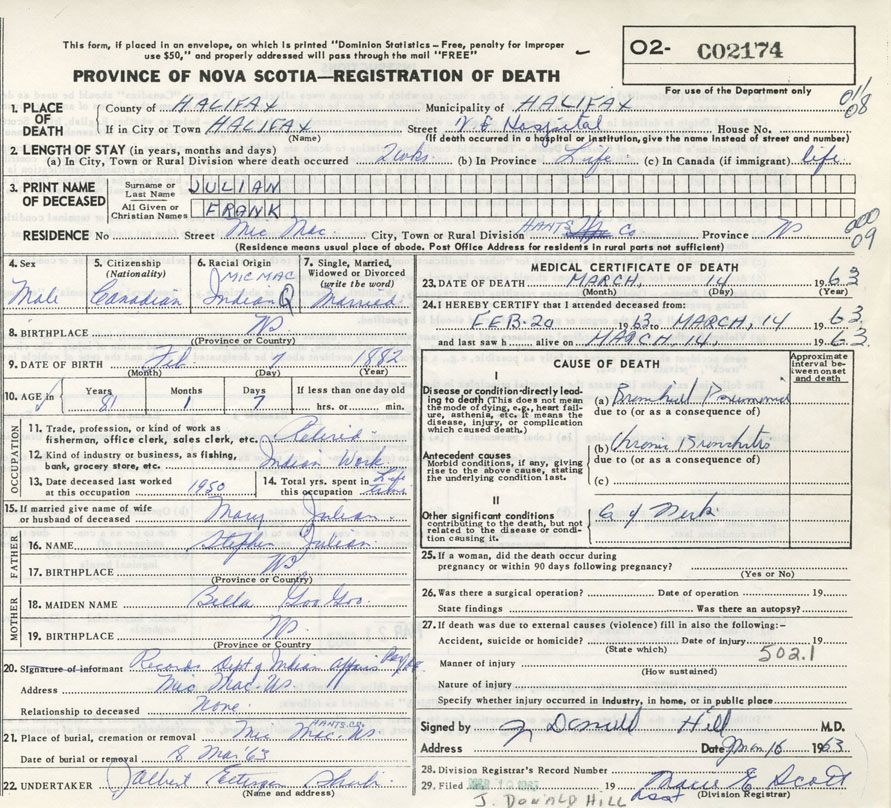 This form, if placed in an envelope, on which is printed "Dominion Statistics - Free, penalty for Improper
use $50," and properly addressed will pass through the mail "FREE"
O2- C02174
PROVINCE OF NOVA SCOTIA—REGISTRATION OF DEATH
For use of the Department only
1. PLACE OF DEATH
County of HALIFAX Municipality of HALIFAX
If in City or Town HALIFAX Street V. G. Hospital House No.
(Name) (If death occurred in a hospital or institution, give the name instead of street and number)
2. LENGTH OF STAY (in years, months and days)
(a) In City, Town or Rural Division where death occurred 2 wks. (b) In Province Life (c) In Canada (if immigrant) life
3. PRINT NAME OF DECEASED
Surname or Last Name JULIAN
All Given or Christian Names FRANK
RESIDENCE No Street Mic Mac City, Town or Rural Division HANTS Co Province NS
(Residence means usual place of abode. Post Office Address for residents in rural parts not sufficient)
000
09
4. Sex Male
5. Citizenship (Nationality) Canadian
6. Racial Origin MICMAC Indian
7. Single, Married, Widowed or Divorced (write the word) Married
8. BIRTHPLACE NS
(Province or Country)
9. DATE OF BIRTH Feb. 7 1882
(Month) (Day) (Year)
10. AGE in Years 81 Months 1 Days 7 If less than one day old
hrs. or min.
OCCUPATION
11. Trade, profession, or kind of work as
fisherman, office clerk, sales clerk, etc. Retired
12. Kind of industry or business, as fishing,
bank, grocery store, etc. Indian Work
13. Date deceased last worked
at this occupation 1950
14. Total yrs. spent in
this occupation Life time
15. If married give name of wife
or husband of deceased Mary Julian
FATHER
16. NAME Stephen Julian
17. BIRTHPLACE NS
(Province or Country)
MOTHER
18. MAIDEN NAME Bella Goo Goo
19. BIRTHPLACE NS
(Province or Country)
20. Signature of informant Records Dept of Indian Affairs
Address Mic Mac NS
Relationship to deceased None.
21. Place of burial, cremation or removal Mic Mac NS HANTS.CO.
Date of burial or removal 18 Mar '63
22. UNDERTAKER
(Name and address)
MEDICAL CERTIFICATE OF DEATH
23. DATE OF DEATH MARCH, 14 1963
(Month) (Day) (Year)
24. I HEREBY CERTIFY that I attended deceased from:
FEB. 20 1963 to MARCH, 14 1963
and last saw h alive on MARCH, 14, 1963.
CAUSE OF DEATH
Approximate interval between onset and death
I
Disease or condition directly leading to death (This does not mean the mode of dying, e.g., heart failure, asthenia, etc. It means the disease, injury, or complication which caused death.)
(a) Bronchial
due to (or as a consequence of)
Antecedent causes
Morbid conditions, if any, giving rise to the above cause, stating the underlying condition last.
(b) Chronic Bronchitis
due to (or as a consequence of)
(c)
II
Other significant conditions
contributing to the death, but not related to the disease or condition causing it.
25. If a woman, did the death occur during
pregnancy or within 90 days following pregnancy?
(Yes or No)
26. Was there a surgical operation? Date of operation 19
State findings Was there an autopsy?
27. If death was due to external causes (violence) fill in also the following:-
Accident, suicide or homicide? Date of injury 19
(State which) 502.1
Manner of injury
(How sustained)
Nature of injury
Specify whether injury occurred in industry, in home, or in public place
Signed by J Donald Hill M.D.
Address Date Mar 16 1963
28. Division Registrar's Record Number
29. Filed 19
(Division Registrar)
J. DONALD HILL